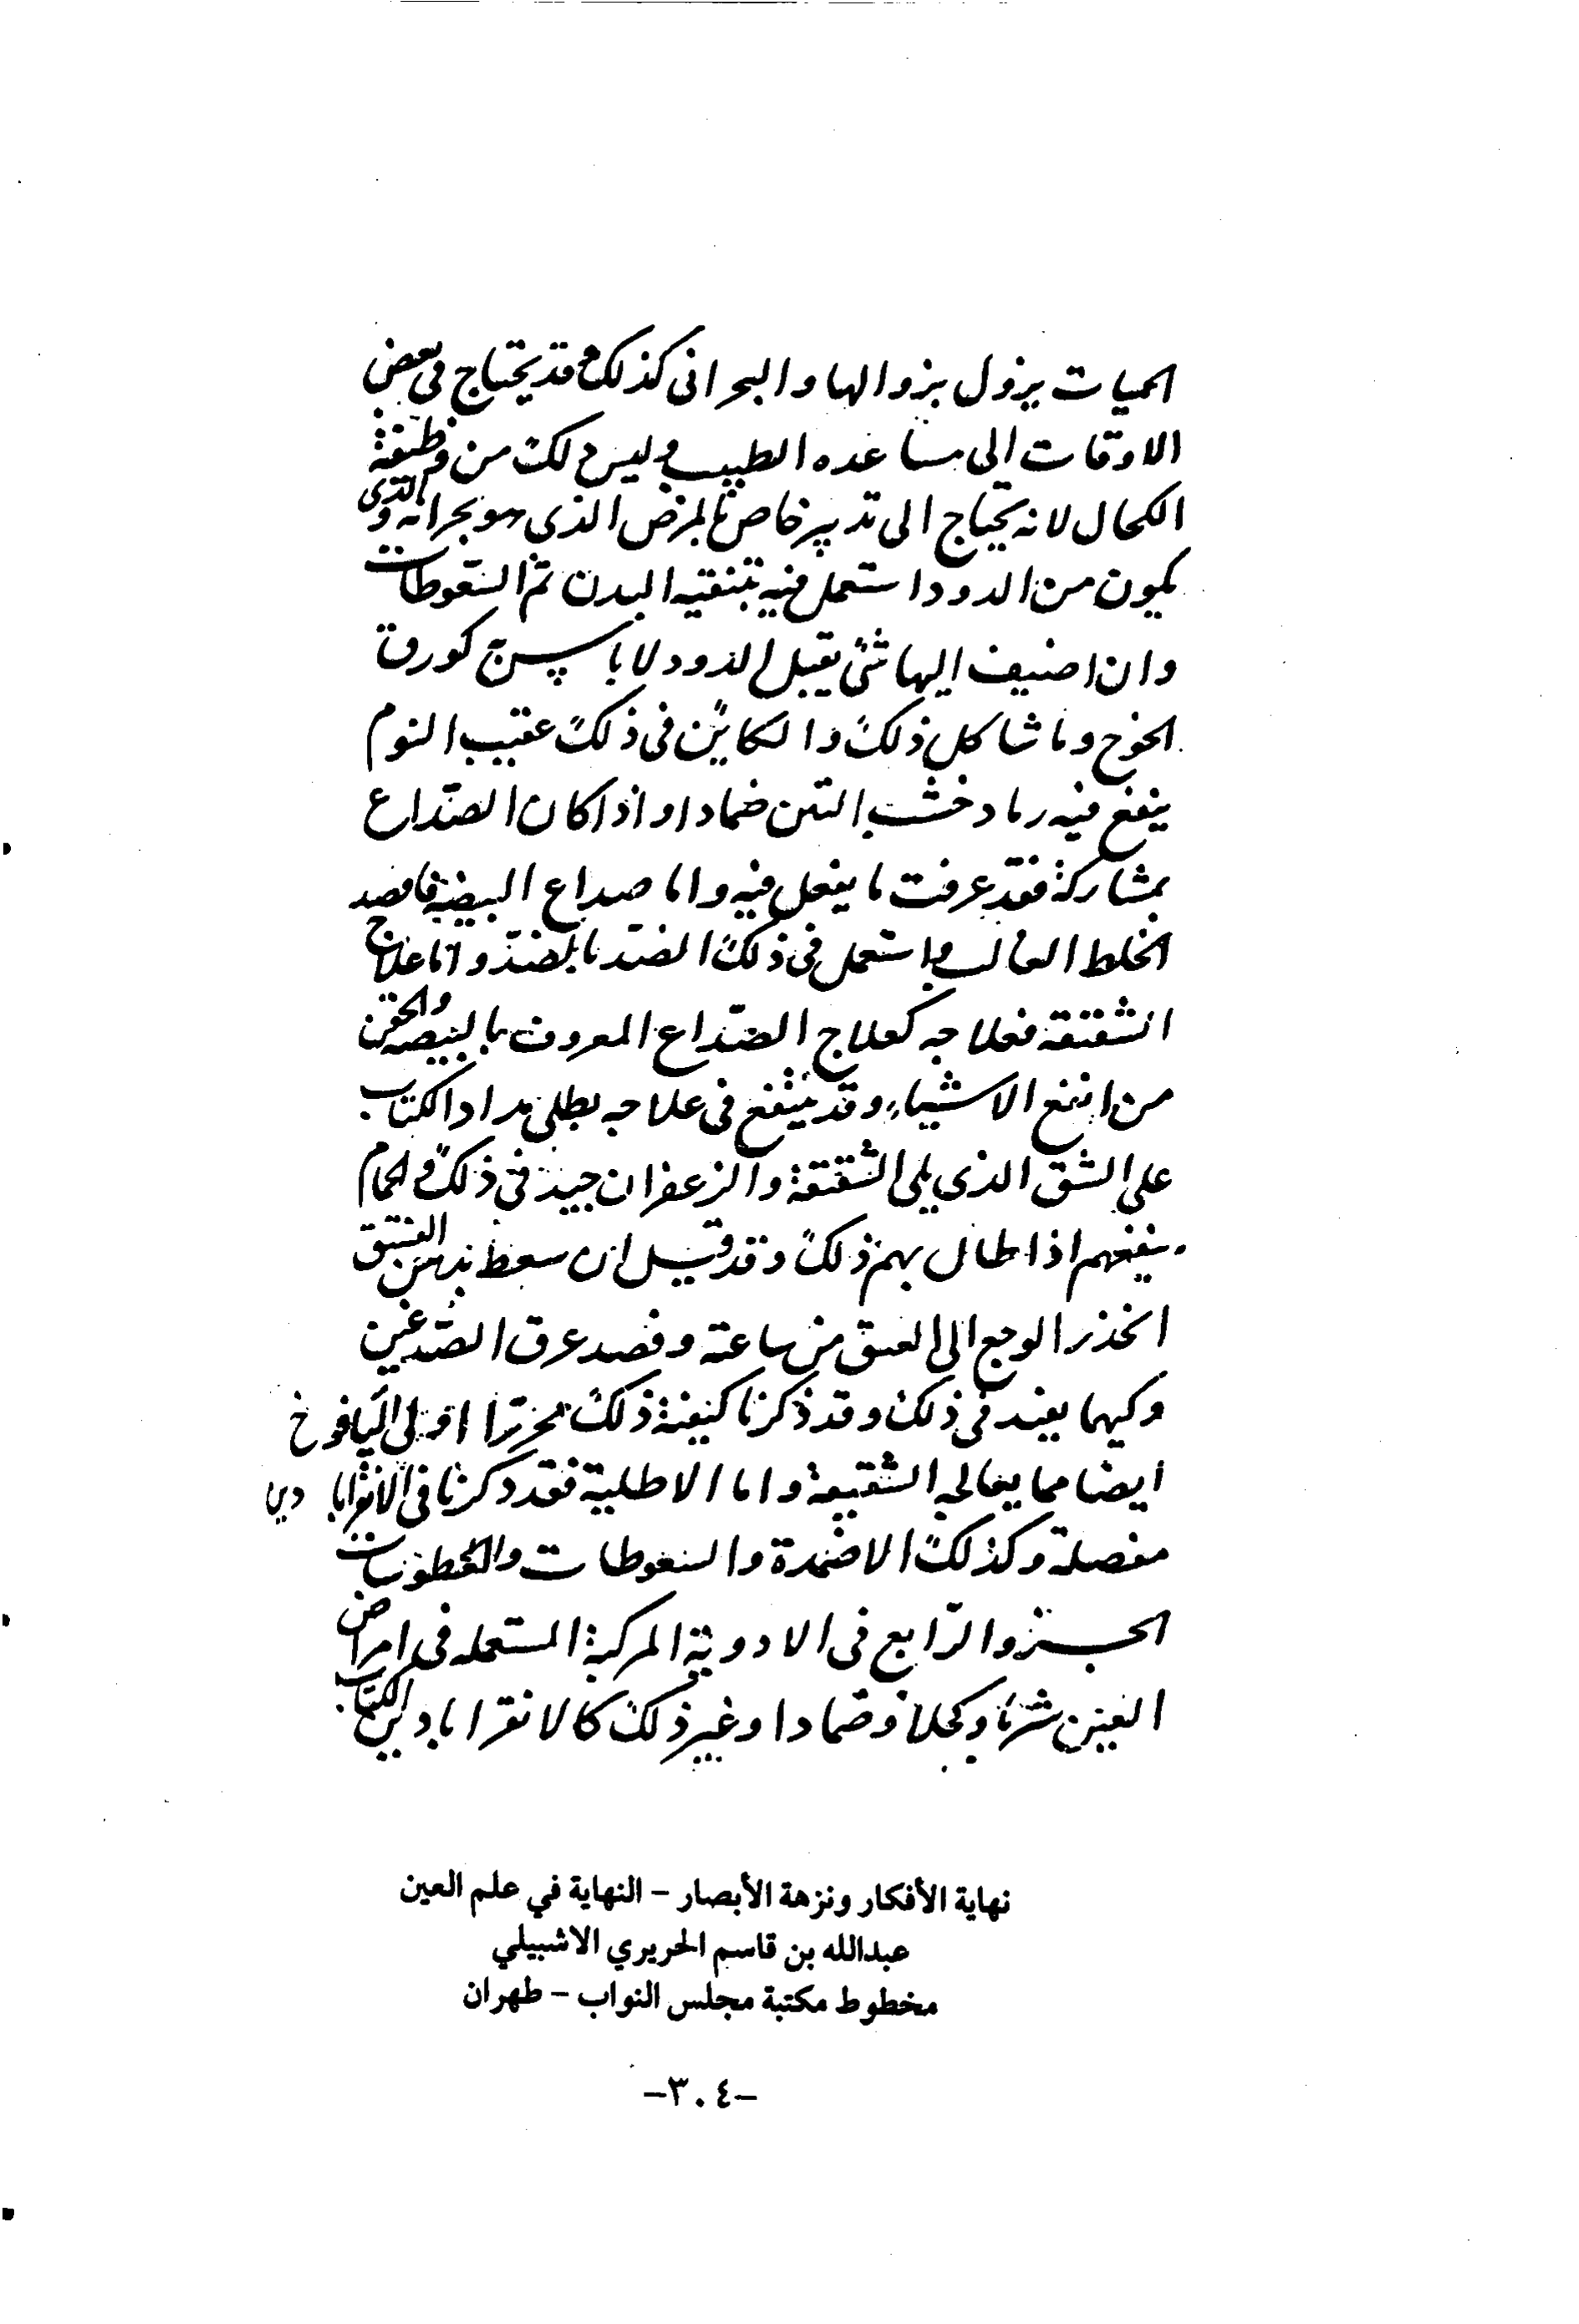 الحميات يزول بزوالها والبحرانى كذلك وقد يحتاج فى بعض
الاوقات الى مساعده الطبيب وليس ذلك من وظيفة
الكحال لانه يحتاج الى تدبير خاص بالمرض الذى هو بحرانه والذى
يكون من الدود استعمل فيه تنقيه البدن ثم السعوطات
وان اضيف اليها شئ يقتل الدود لا باس به كورق
الخوخ وما شاكل ذلك والكاين فى ذلك عقيب النوم
ينفع فيه رماد خشب التين ضمادا واذا كان الصداع
بمشاركة فقد عرفت ما يفعل فيه واما صداع البيضة فافصد
الخلط الغالب واستعمل فى ذلك الضد بالضد واما علاج
الشقيقة فعلاجه كعلاج الصداع المعروف بالبيضه والحقن
من انفع الاشياء وقد ينتفع فى علاجه بطلى مداد الكتاب
على الشق الذى يلى الشقيقة والزعفران جيد فى ذلك والحمام
ينفعهم اذا طال بهم ذلك وقد قيل ان سعط بدهن الفستق
انحدر الوجع الى العنق من ساعته وفصد عرق الصدغين
وكيهما يفيد فى ذلك وقد ذكرنا كيفية ذلك اليافوخ
ايضا مما يعالج الشقيقة واما الاطلية فقد ذكرنا فى الاقرابادين
مفصلة وكذلك الاضمدة والسعوطات
الجزو الرابع فى الادوية المركبة المستعمله فى امراض
العين شربا وكحلا وضمادا وغير ذلك كالاقرابادين الكتاب
نهاية الأفكار ونزهة الأبصار – النهاية في علم العين
عبدالله بن قاسم الحريري الاشبيلي
مخطوط مكتبة مجلس النواب – طهران
–٣٠٤–